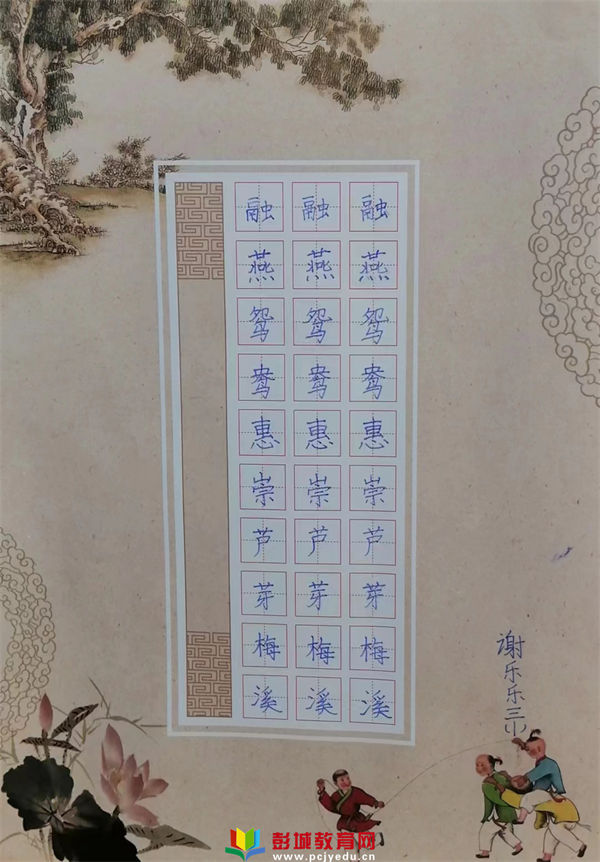 融 融 融
燕 燕 燕
鸳 鸳 鸳
鸯 鸯 鸯
惠 惠 惠
崇 崇 崇
芦 芦 芦
芽 芽 芽
梅 梅 梅
溪 溪 溪
谢乐乐三小
彭城教育网
www.pcjyedu.cn